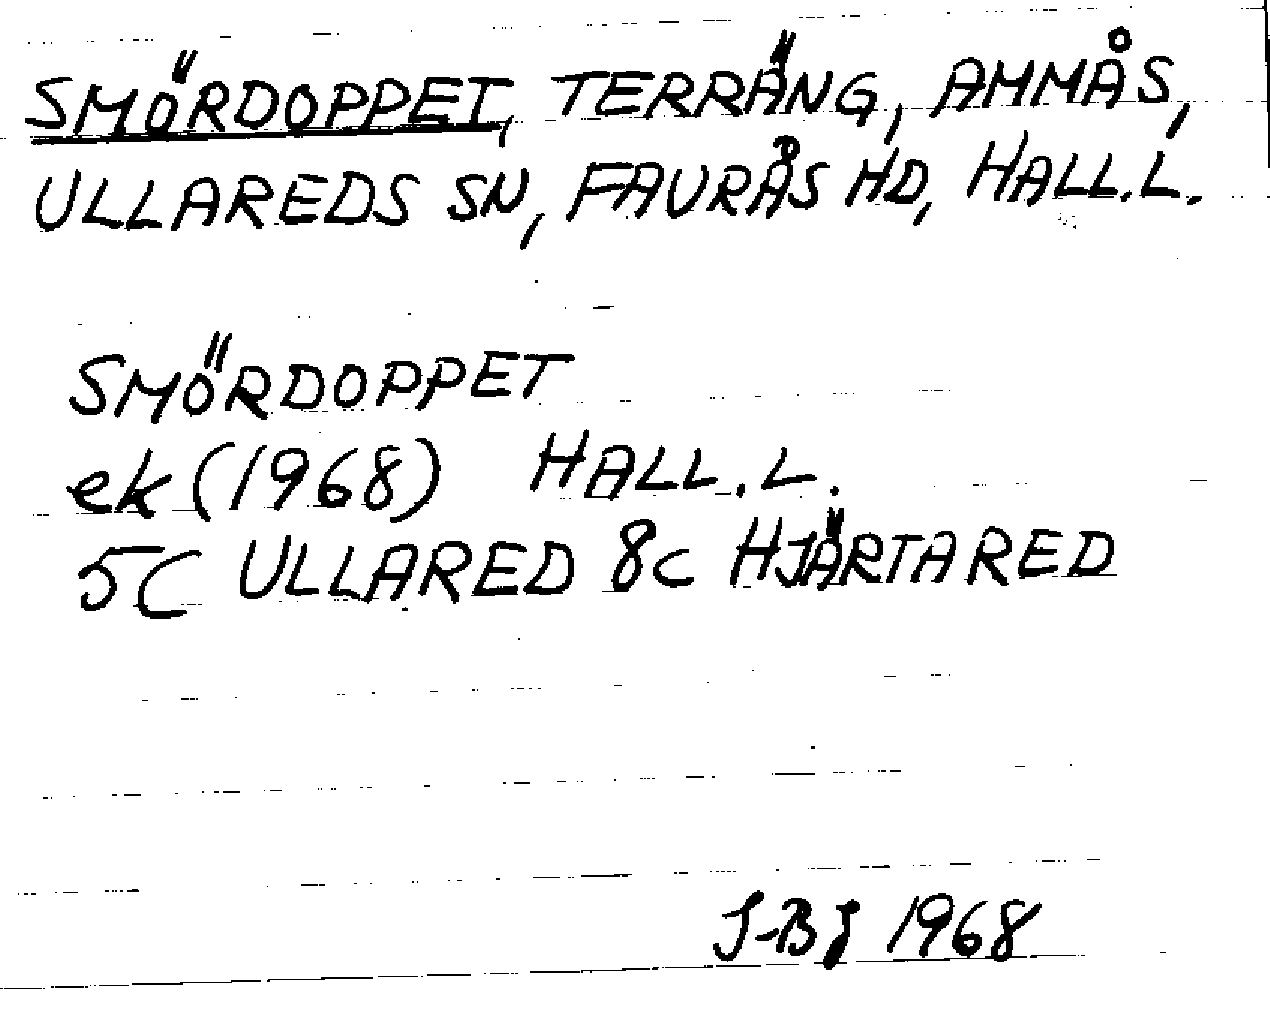 SMÖRDOPPET, TERRÄNG, AMMÅS,
ULLAREDS SN, FAURÅS HD, HALL.L.
SMÖRDOPPET
ek (1968) HALL.L.
5C ULLARED 8c HJÄRTARED
J-BJ 1968